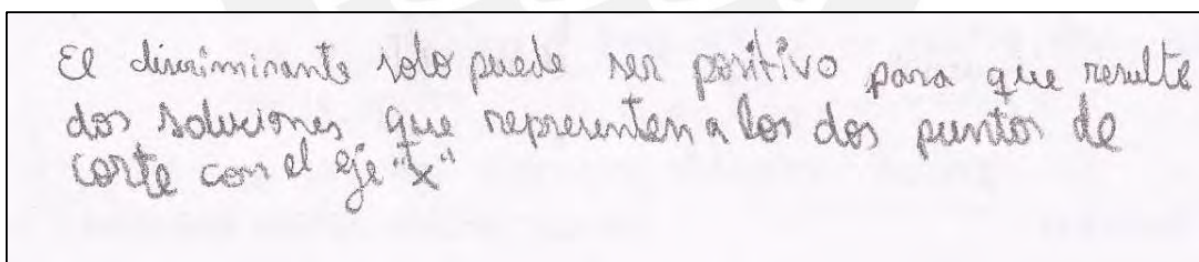 El discriminante solo puede ser positivo para que resulte
dos soluciones que representen a los dos puntos de
corte con el eje "x"